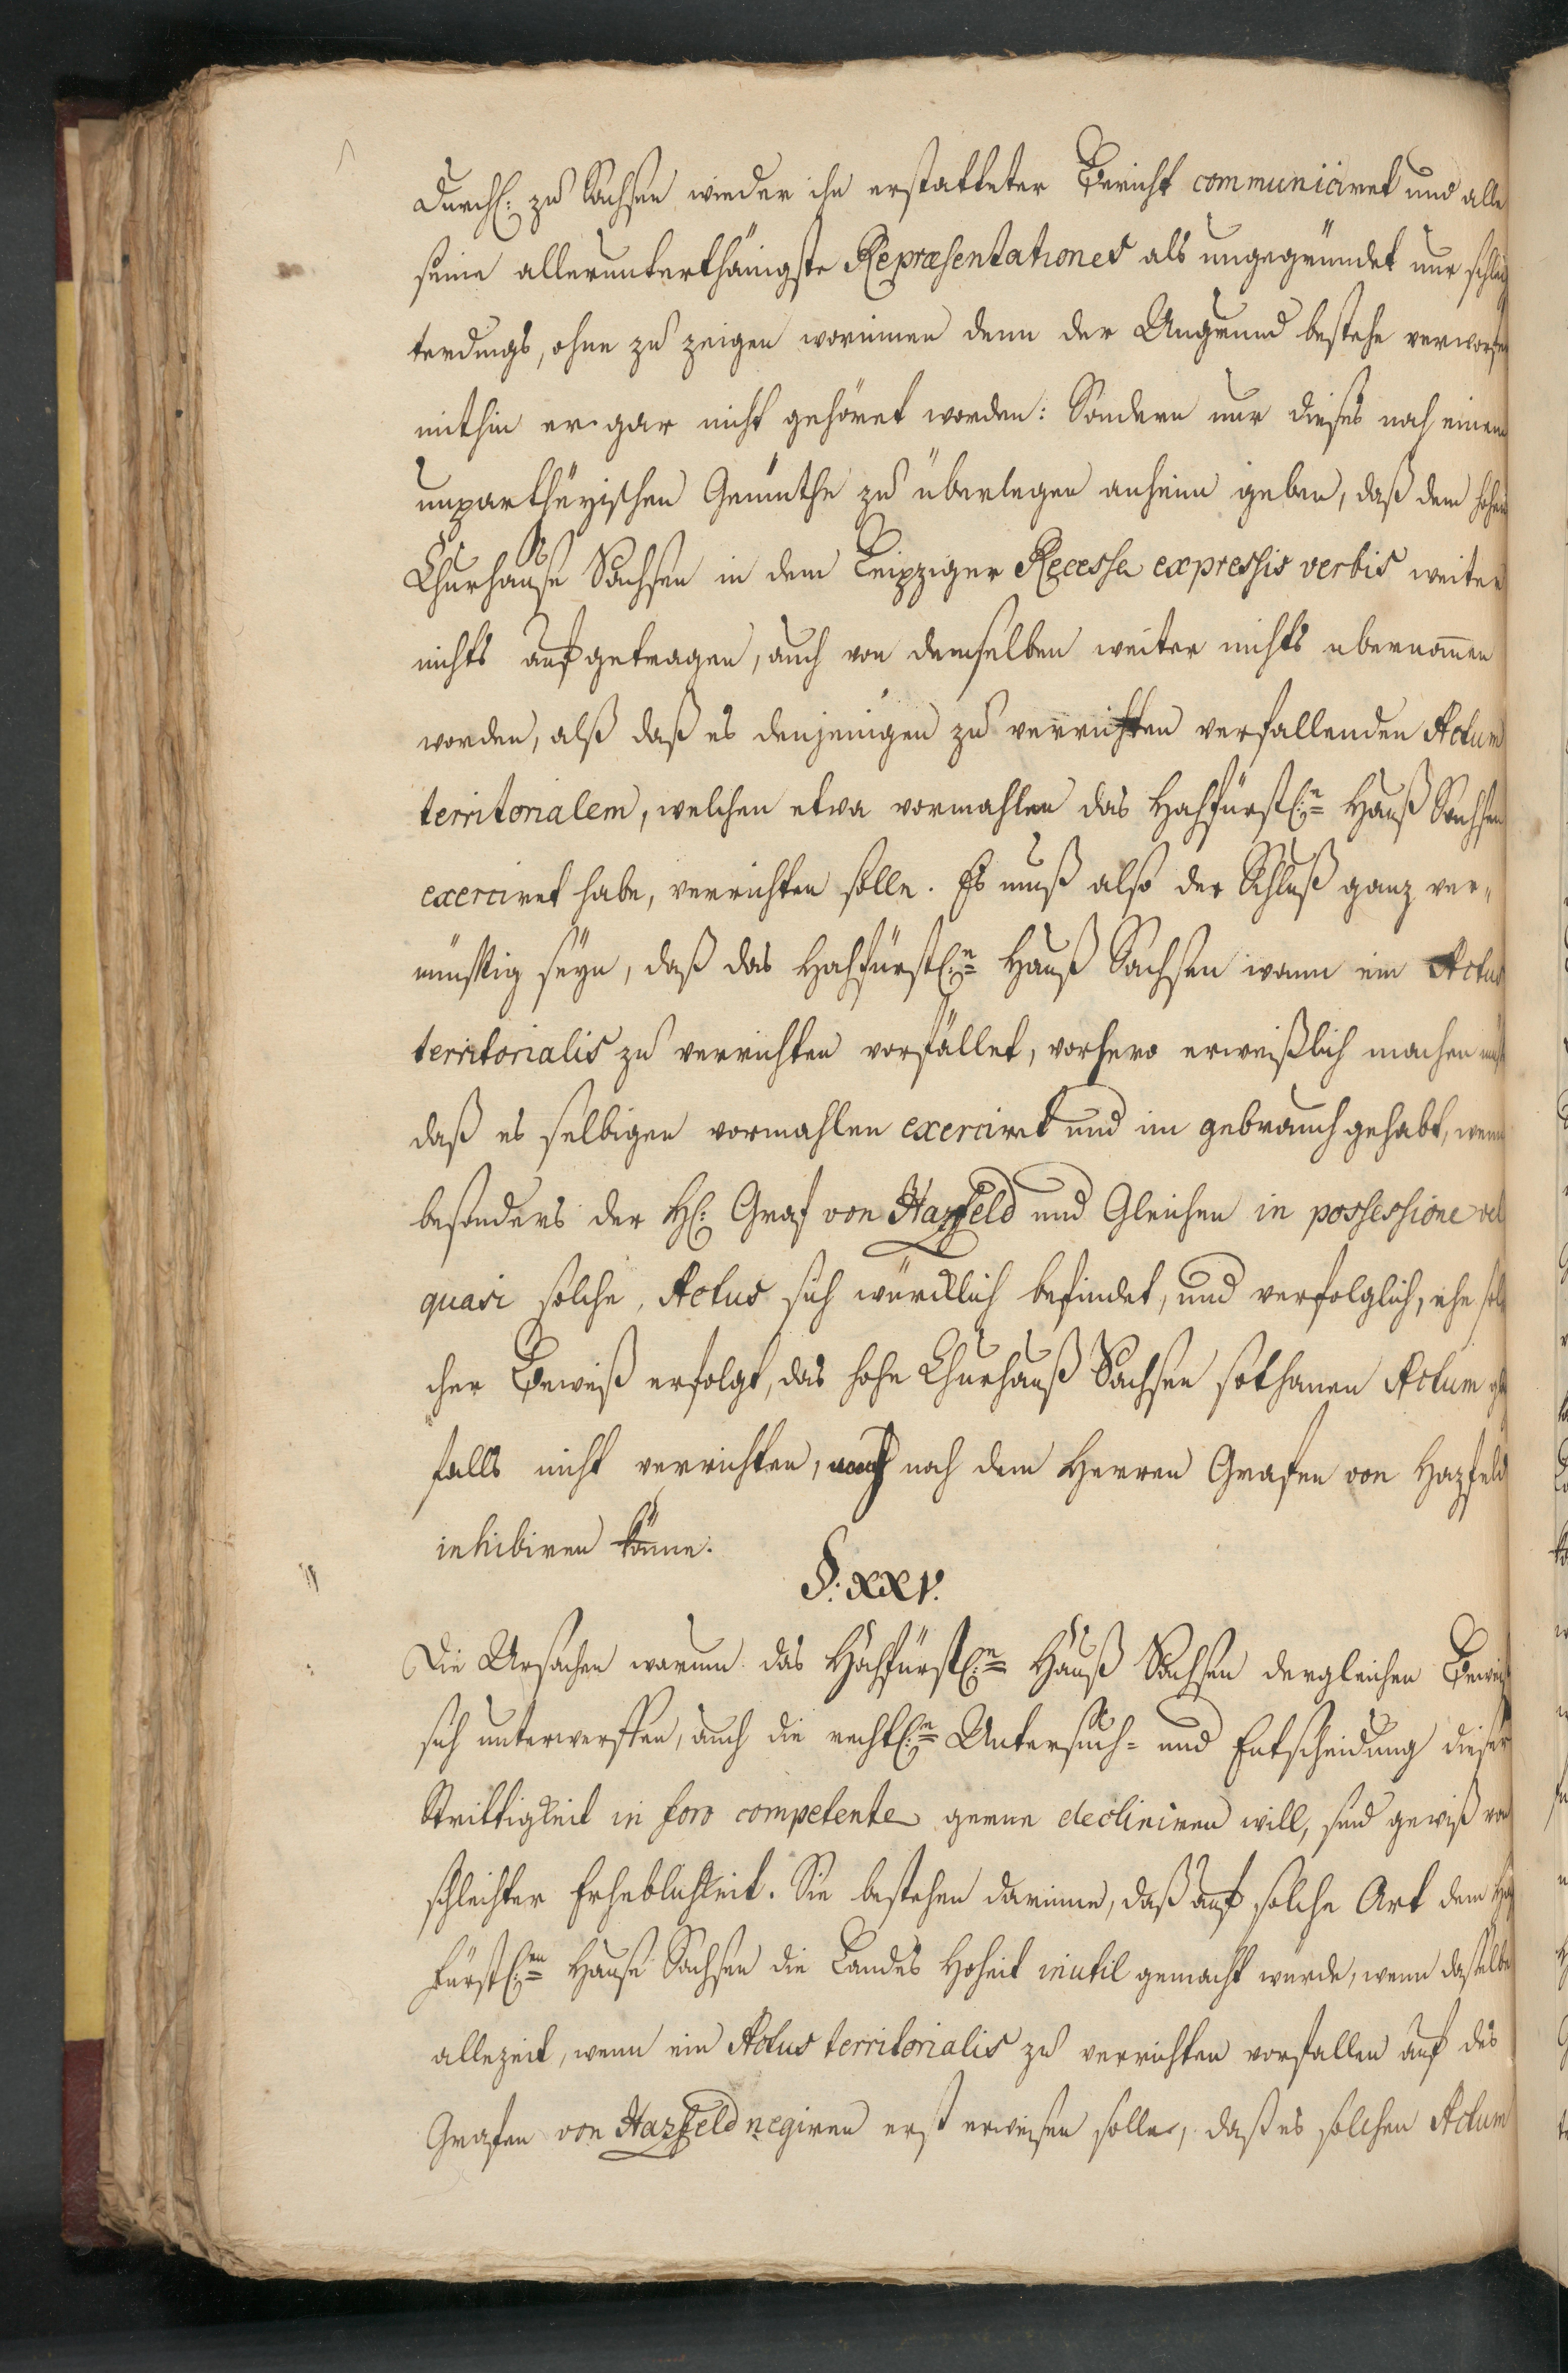 Durchl: zu Sachsen wieder ihn erstatteter Bericht communiciret und alle
seine allerunterthänigste Repræsentationes als ungegründet nur schlech
terdings, ohne zu zeigen worinnen denn der Ungrund bestehe verworfen
mithin er gar nicht gehöret worden: Sondern nur dieses noch einem
unpartheyischen Gemüthe zu überlegen anheim geben, daß dem hohen
Churhause Sachsen in dem Leipziger Recesse expressis verbis weiter
nichts aufgetragen, auch von demselben weiter nichts übernom̄en
worden, alß daß es denjenigen zu verrichten verfallenden Actum
territorialem, welchen etwa vormahlen das Hochfürstl:n Hauß Sachsen
exerciret habe, verrichten solle. Es muß also der Schluß ganz ver-
nünfftig seyn, daß das Hochfürstl:n Hauß Sachsen wann ein Actus
territorialis zu verrichten vorfället, vorhero erweißlich machen müß
daß es selbigen vormahlen exerciret und im gebrauch gehabt, wenn
besonders der H: Graf von Hazfeld und Gleichen in possessione vel
quasi solche, Actus sich würcklich befindet, und verfolglich, ehe sol
cher Beweiß erfolgt, das hohe Churhauß Sachsen sothanen Actum
falls nicht verrichten, noch dem Herren Grafen von Hazfeld
inhibiren könne.
§. XXV.
Die Ursachen warum das Hochfürstl:n Hauß Sachsen dergleichen Beweiß
sich unterwerffen, auch die rechtl:n Untersuch- und Entscheidung dieser
Strittigkeit in foro competente gerne decliniren will, sind gewiß von
schlechter Erheblichkeit. Sie bestehen darinne, daß auf solche Art dem Hoch
fürstl:en Hause Sachsen die Landes Hoheit inutil gemacht würde, wenn dasselbe
allezeit, wenn ein Actus territorialis zu verrichten vorfallen auf des
Grafen von Hazfeld negiren erst erweisen solle, daß es solchen Actum